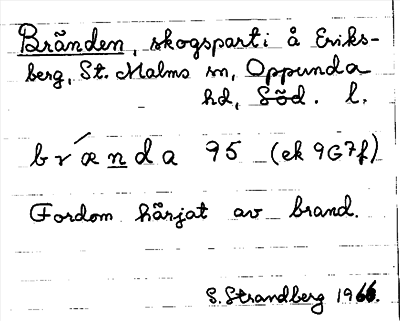 Bränden, skogsparti å Eriks-
berg, St. Malms sn, Oppunda
hd, Söd. l.
brǽnda 95 (ek 9G7f)
Fordom härjat av brand.
S. Strandberg 1966.